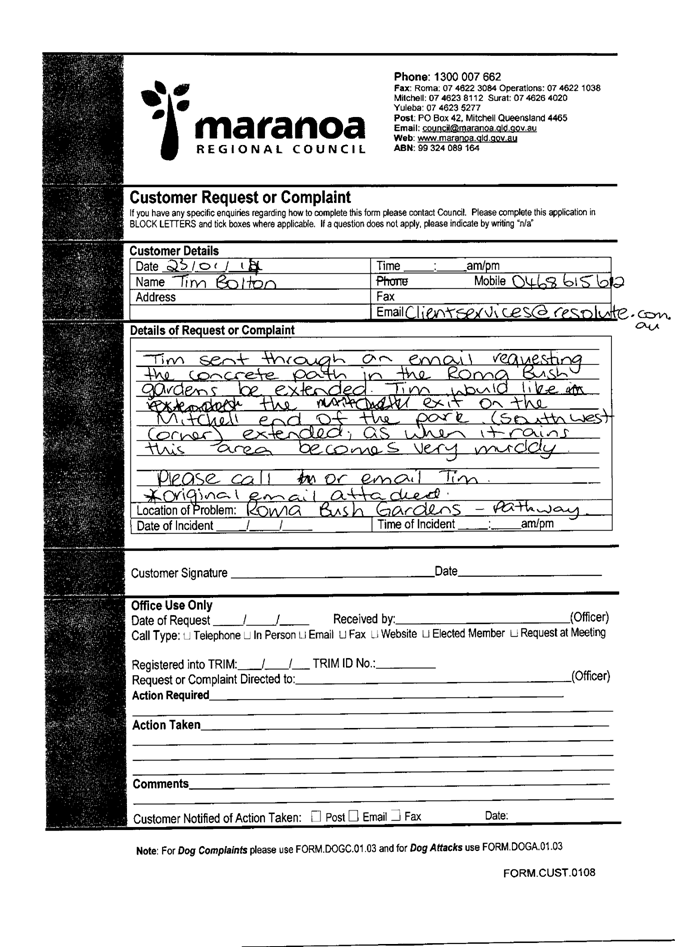 maranoa
REGIONAL COUNCIL
Phone: 1300 007 662
Fax: Roma: 07 4622 3084 Operations: 07 4622 1038
Mitchell: 07 4623 8112 Surat: 07 4626 4020
Yuleba: 07 4623 5277
Post: PO Box 42, Mitchell Queensland 4465
Email: council@maranoa.qld.gov.au
Web: www.maranoa.qld.gov.au
ABN: 99 324 089 164
Customer Request or Complaint
If you have any specific enquiries regarding how to complete this form please contact Council. Please complete this application in
BLOCK LETTERS and tick boxes where applicable. If a question does not apply, please indicate by writing "n/a"
Customer Details
Date 23/01/ Time : am/pm
Name Tim Bolton Phone Mobile 0468 615 612
Address Fax
Email Clientservices@resolute.com.
au
Details of Request or Complaint
Tim sent through an email requesting
the concrete path in the Roma Bush
gardens be extended. Tim would like
the exit on the
Mitchell end of the park (South west
corner) extended, as when it rains
this area becomes very muddy.
Please call or email Tim.
*original email attached.
Location of Problem: Roma Bush Gardens - Pathway
Date of Incident / / Time of Incident : am/pm
Customer Signature Date
Office Use Only
Date of Request / / Received by: (Officer)
Call Type: Telephone In Person Email Fax Website Elected Member Request at Meeting
Registered into TRIM: / / TRIM ID No.:
Request or Complaint Directed to: (Officer)
Action Required
Action Taken
Comments
Customer Notified of Action Taken: Post Email Fax Date:
Note: For Dog Complaints please use FORM.DOGC.01.03 and for Dog Attacks use FORM.DOGA.01.03
FORM.CUST.0108